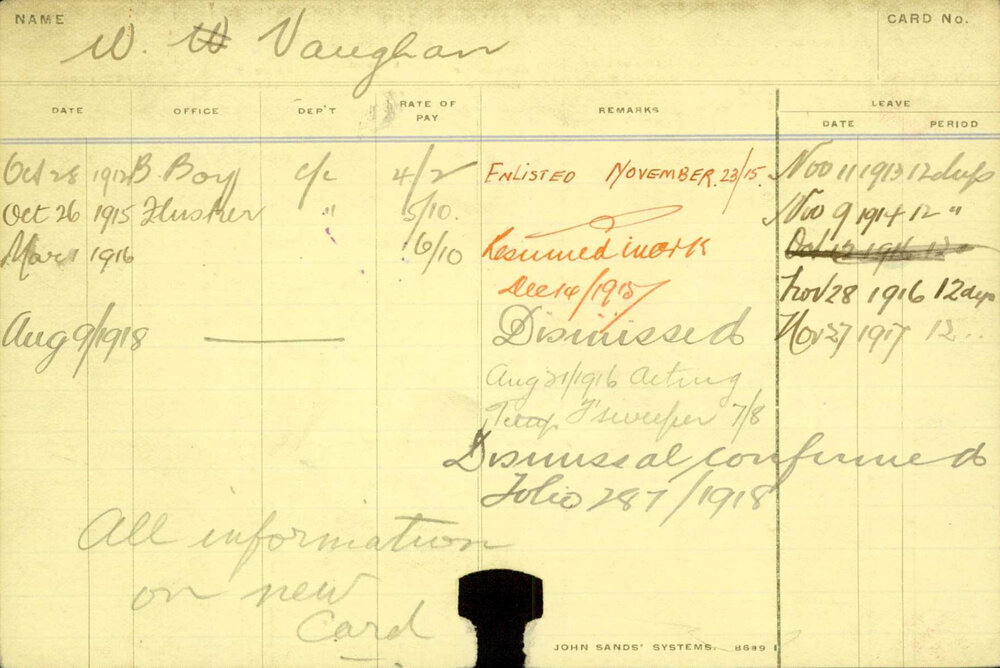 NAME
W. W Vaughan
CARD No.
DATE OFFICE DEP'T RATE OF PAY REMARKS LEAVE
DATE PERIOD
Oct 28 1912 B. Boy c/c 4/2 ENLISTED NOVEMBER. 23/15. Nov 11 1913 12 days
Oct 26 1915 Flusher " 5/10. Nov 9 1914 12 "
Mar 1 1916 6/10 Resumed work Oct 12 1916 12
Dec 14/1915 Nov 28 1916 12 days
Aug 9/1918 Dismissed Nov 27 1917 12 ..
Aug 21/1916 Acting
Temp F'sweeper 7/8
Dismissal confirmed
Folio 287/1918
All information
on new
Card
JOHN SANDS' SYSTEMS. 8689